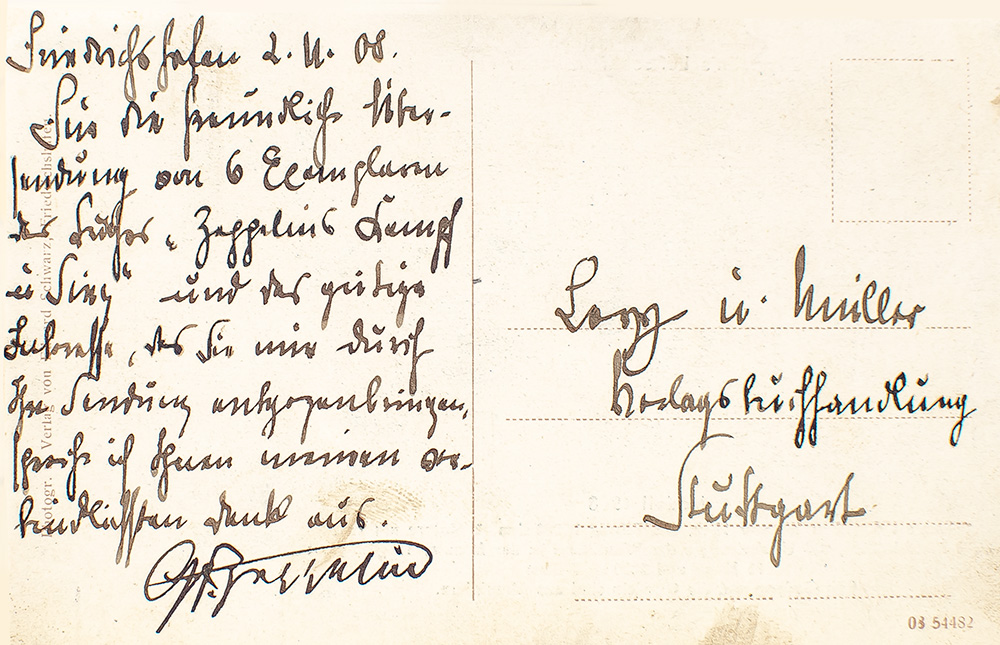 Friedrichshafen 2. 11. 08.
Für die freundliche Über-
sendung von 6 Exemplaren
des Buches „Zeppelins Kampf
u Sieg“ und das gütige
Interesse, das Sie mir durch
Ihre Sendung entgegenbringen,
spreche ich Ihnen meinen ver-
bindlichsten Dank aus.
Gf. Zeppelin
Levy u. Müller
Verlagsbuchhandlung
Stuttgart
Photogr. Verlag von Schwarz, Friedrichshafen
03 54482